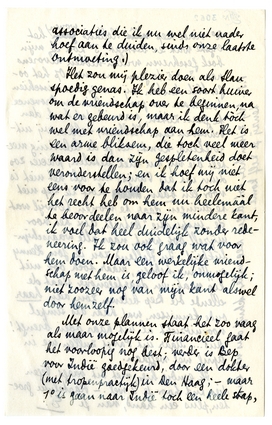 associaties die ik nu wel niet nader
hoef aan te duiden, sinds onze laatste
ontmoeting.)
Het zou mij plezier doen als Slau
spoedig genas. Ik heb een soort huiver
om de vriendschap over te beginnen, na
wat er gebeurd is, maar ik denk toch
wel met vriendschap aan hem. Het is
een arme bliksem, die toch veel meer
waard is dan zijn gespletenheid doet
veronderstellen; en ik hoef mij niet
eens voor te houden dat ik toch niet
het recht heb om hem nu heelemaal
te beoordelen naar zijn mindere kant,
ik voel dat heel duidelijk zonder rede-
neering. Ik zou ook graag wat voor
hem doen. Maar een werkelijke vriend-
schap met hem is, geloof ik, onmogelijk;
niet zoozeer nog van mijn kant als wel
door hemzelf.
Met onze plannen staat het zoo vaag
als maar mogelijk is. Financieel gaat
het voorloopig nog best; verder is Bep
voor Indië goedgekeurd, door een dokter
(met tropenpractijk) in Den Haag; – maar
1º is gaan naar Indië toch een heele stap,